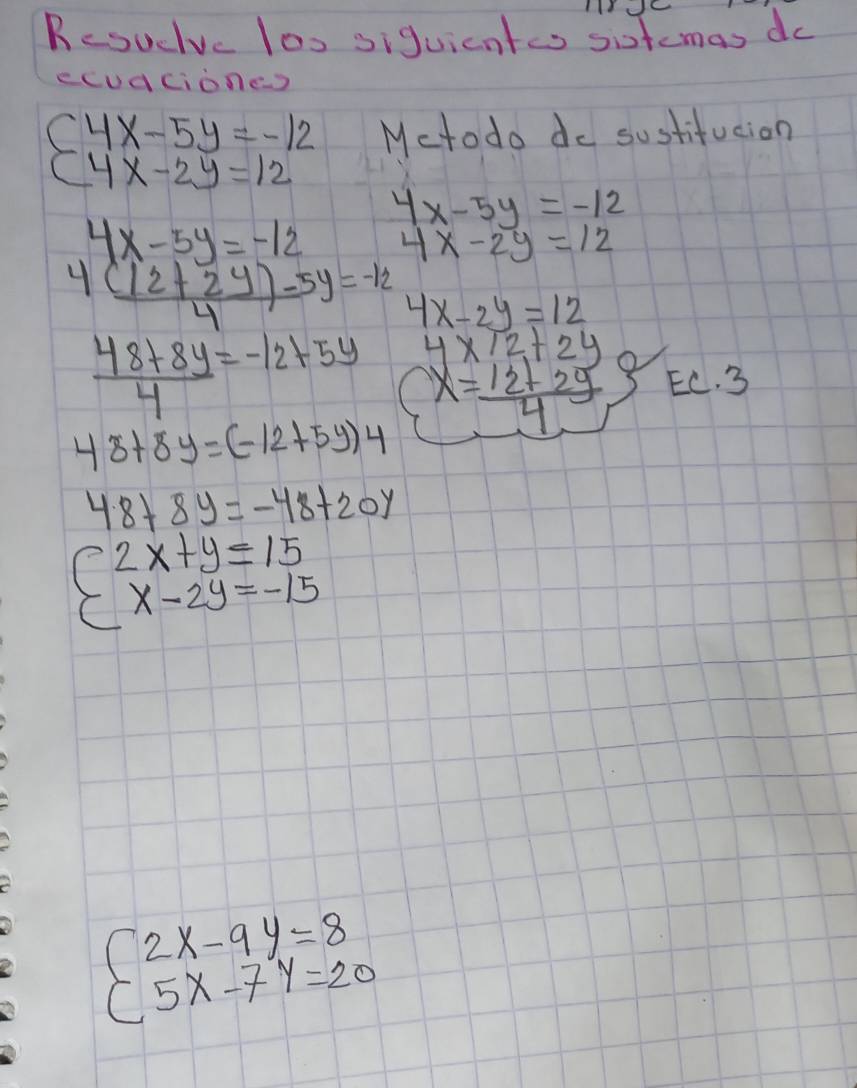 Resuelve los siguientes sistemas de
ecuaciónes
{4x-5y=-12
{4x-2y=12
Metodo de sustitucion
4x-5y=-12
4x-2y=12
4x-5y=-12
4(12+2y)-5y=-12
4
48+8y=-12+5y
4
48+8y=(-12+5y)4
48+8y=-48+20y
4x-2y=12
4x12+2y
{x=12+2y}
4
EC.3
{2x+y=15
{x-2y=-15
{2x-9y=8
{5x-7y=20